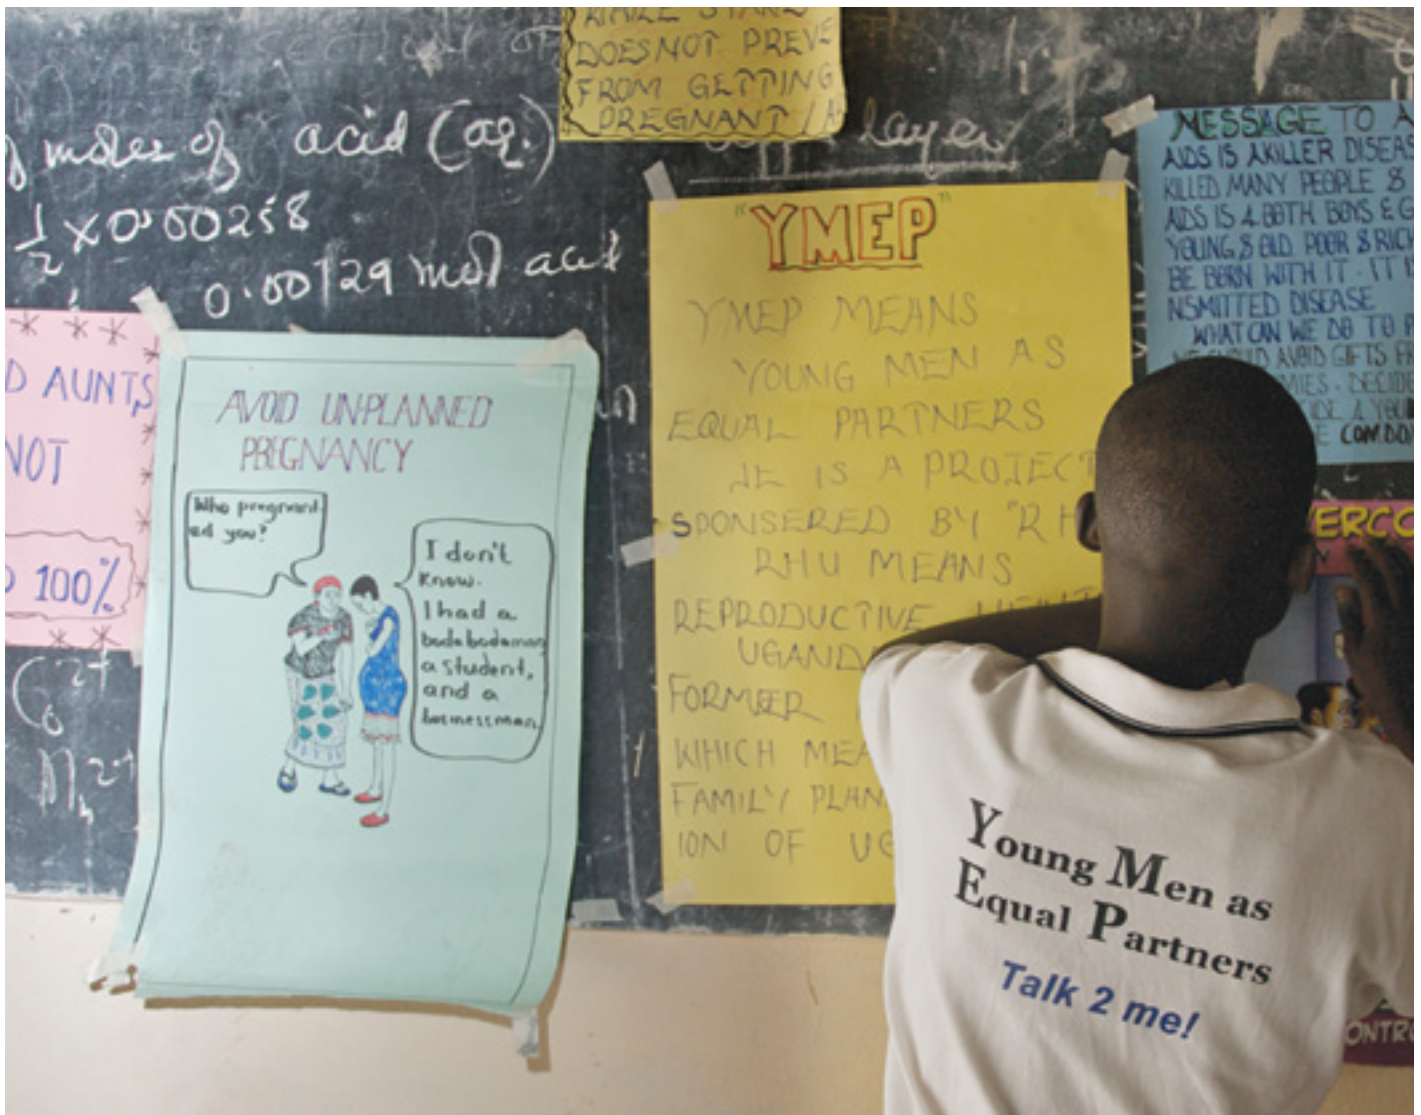 WHILE STAND
DOES NOT PREVE
FROM GETTING
PREGNANT / A
of moles of acid (aq.)
1/2 x 0.00258
0.00129 mol acid
layer
D AUNTS
NOT
100%
AVOID UN-PLANNED
PREGNANCY
Who pregnant
ed you?
I don't
know.
I had a
boda bodaman
a student,
and a
businessman.
"YMEP"
YMEP MEANS
YOUNG MEN AS
EQUAL PARTNERS
IS A PROJECT
SPONSERED BY "RH
RHU MEANS
REPRODUCTIVE
UGANDA
FORMER
WHICH MEA
FAMILY PLAN
ION OF UG
MESSAGE TO A
AIDS IS A KILLER DISEAS
KILLED MANY PEOPLE &
AIDS IS 4 BOTH BOYS & G
YOUNG & OLD POOR & RICH
BE BORN WITH IT. IT I
NSMITTED DISEASE
WHAT CAN WE DO TO P
AVOID GIFTS FR
DECIDE
4 YOU
CONDO
VERCO
Young Men as
Equal Partners
Talk 2 me!
ONTRO